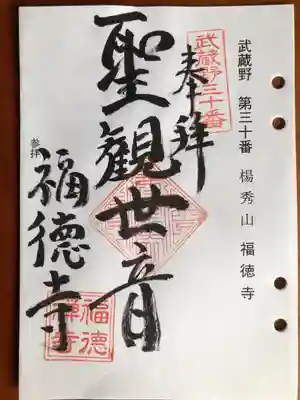 武蔵野 第三十番 楊秀山 福徳寺
武蔵野三十番
奉拝
聖觀世音
参拝
福徳寺
福徳
禅寺